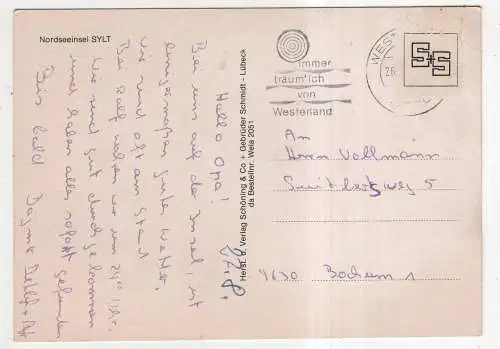 Nordseeinsel SYLT
27.8.
Hallo Opa!
Bei uns auf der Insel, ist
einigermaßen gutes Wetter.
wir sind oft am Strand
Bei Ralf waren wir um 24⁰⁰ Uhr.
Wir sind gut durchgekommen
und haben alles sofort gefunden
Bis bald Dagmar, Detlef +
Herst. + Verlag Schöning & Co + Gebrüder Schmidt - Lübeck
da Bestellnr. Wela 2051
immer
träum'ich
von
Westerland
WES
26.
S+S
An
Herrn Vollmann
5
4630 Bochum 1